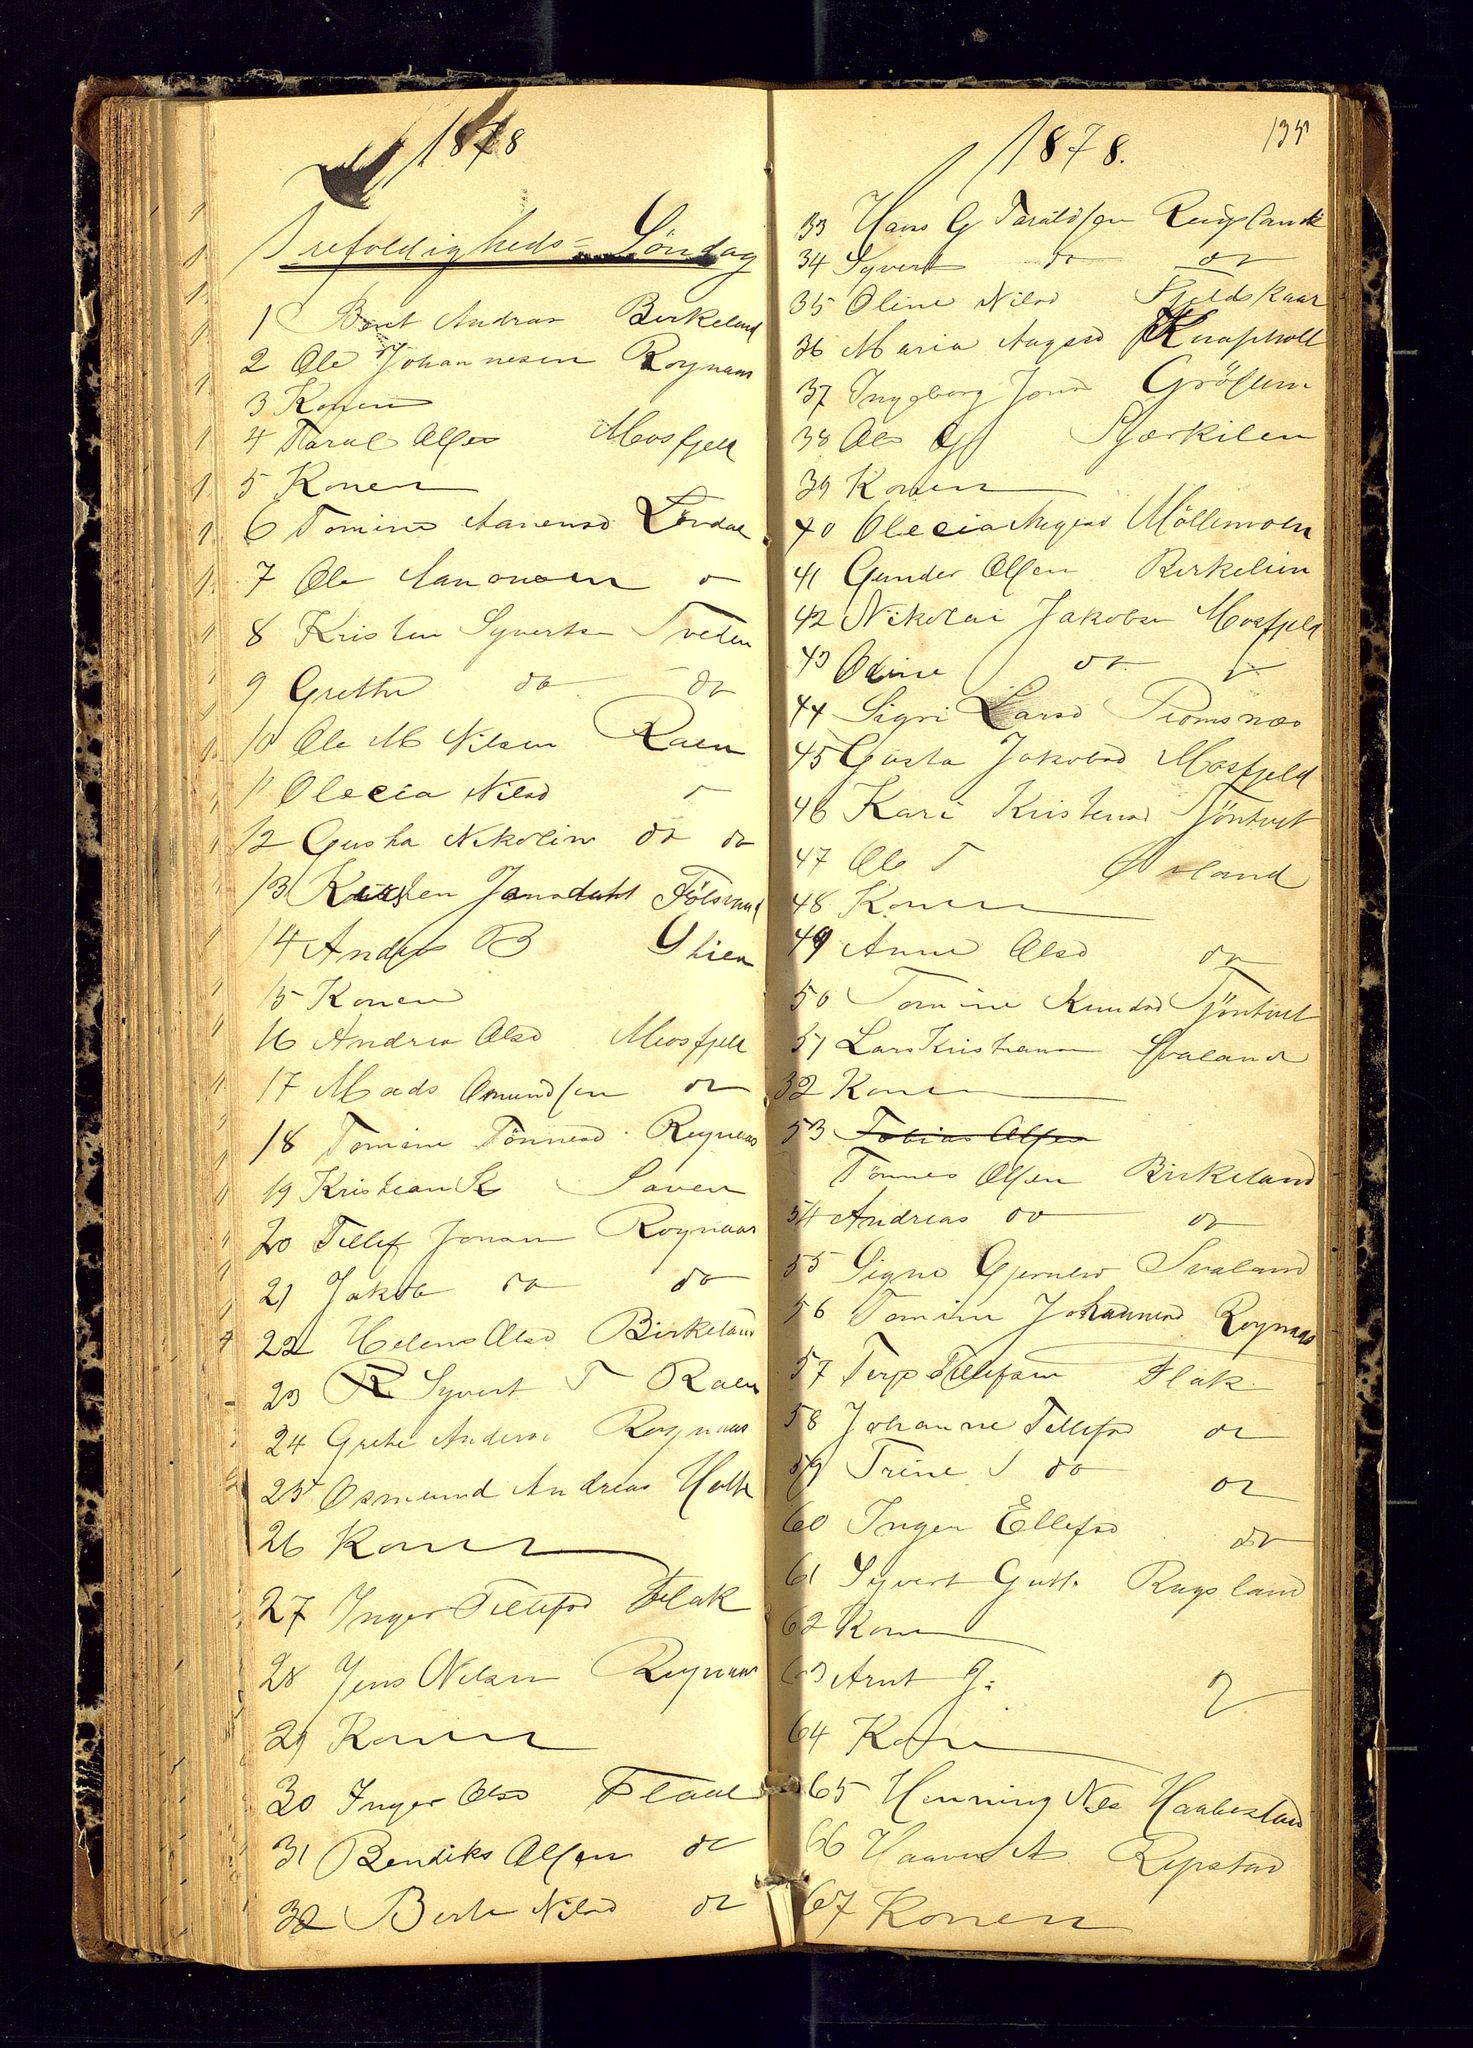 1878
Trefoldigheds=Søndag
1 Bent Andreas Birkeland
2 Ole Johannesen Røynaas
3 Konen
4 Taral Olsen Mosfjeld
5 Konen
6 Tomine Aanensd Løvdal
7 Ole Aanonsen do
8 Kristen Syvertsen Tveden
9 Grethe do do
10 Ole M Nilsen Raen
11 Olecia Nilsd
12 Gusta Nikoline do do
13 Karen Jansdatt Fölsvand
14 Anders B
15 Konen
16 Andrea Olsd Mosfjeld
17 Mads Omundsen do
18 Tomine Tönnesd Røynaas
19 Kristian S Saven
20 Tellef Jonsen Roynaas
21 Jakob do do
22 Helene Olsd Birkeland
23 Syvert T Raen
24 Grethe Andersd Roynaas
25 Osmund Andreas Holte
26 Konen
27 Inger Tellefsd Flak
28 Jens Nilsen Røynaas
29 Konen
30 Inger Olsd Flaae
31 Bendiks Olsen do
32 Berte Nilsd do
1878.
135
33 Hans G Taraldsen Rugsland
34 Syvert do do
35 Oline Nilsd Fjeldskaar
36 Maria Aagesd Knapholt
37 Ingeborg Jonsd Gröslim
38 Ole G Stjerkilen
39 Konen
40 Olecia Aagesd Möllemoen
41 Gunder Olsen Birkelien
42 Nikolai Jakobsen Mosfjeld
43 Oline do
44 Sigri Larsd Tromsnæs
45 Gusta Jakobsd Mosfjeld
46 Kari Kristensd Tjöntvet
47 Ole T Øvland
48 Konen
49 Anne Olsd do
50 Tomine Knudsd Tjöntvet
51 Lars Kristiansen Svaland
52 Konen
53 Tobias Olsen
Tønnes Olsen Birkeland
54 Andreas do do
55 Signe Gjeruldsd Svaland
56 Tomine Johannesd Roynaas
57 Terje Tellefsen Flak
58 Johanne Tellefsd do
59 Trine T do do
60 Inger Ellefsd do
61 Syvert Gutt. Rugsland
62 Konen
63 Arnt J:
64 Konen
65 Henning Nils Haabestad
66 Haaver A Repstad
67 Konen